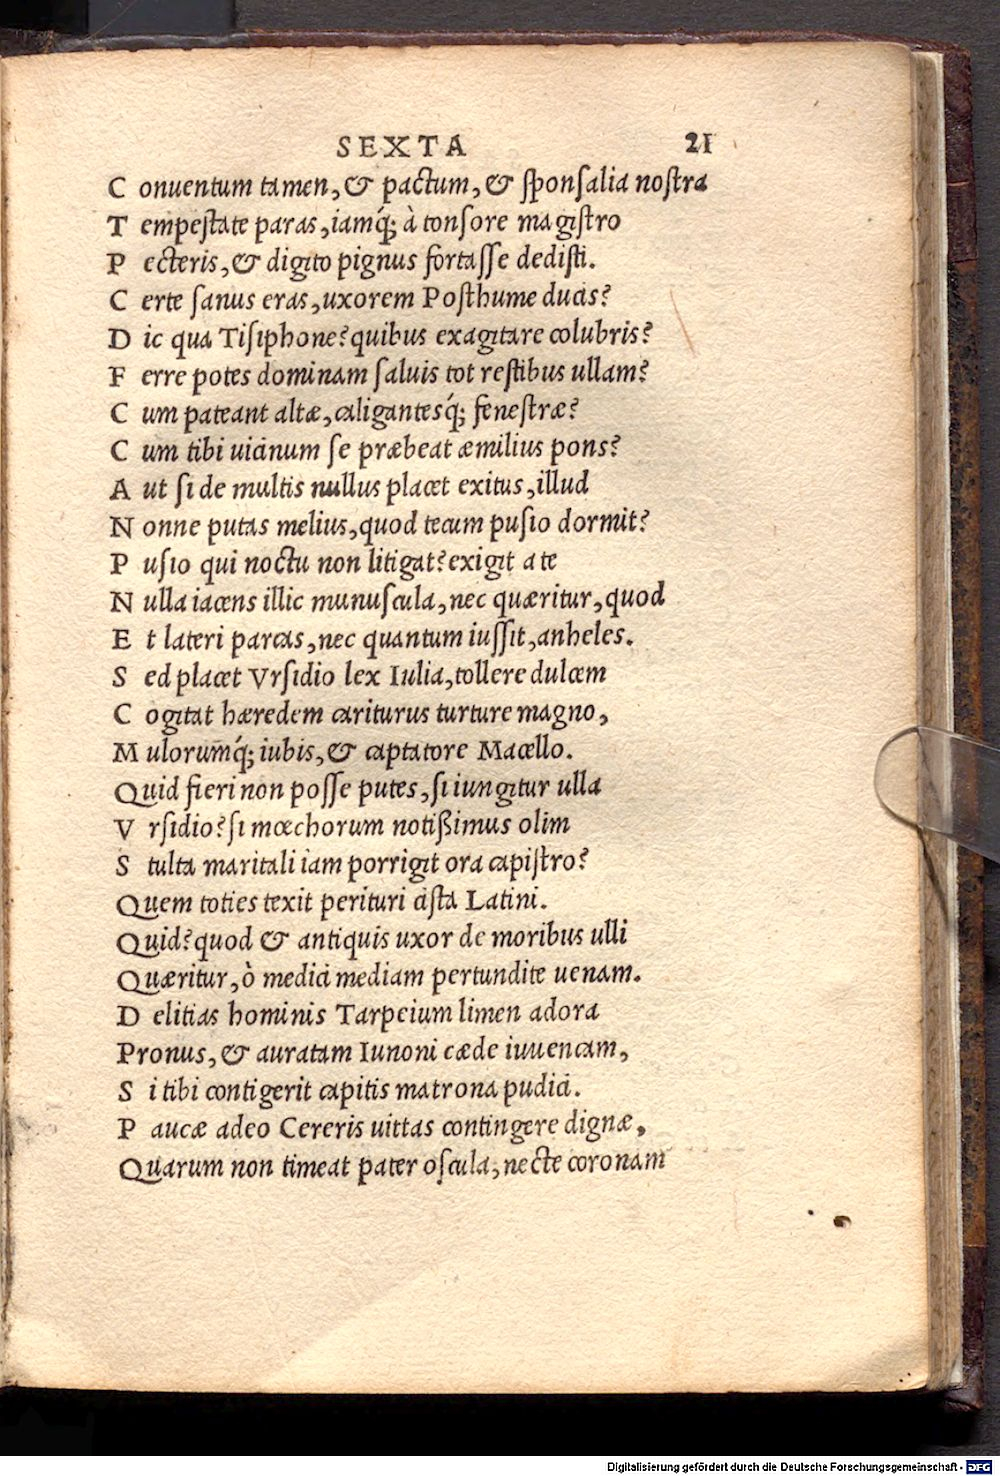 SEXTA 21
C onuentum tamen, & pactum, & sponsalia nostra
T empestate paras, iamq́; à tonsore magistro
P ecteris, & digito pignus fortasse dedisti.
C erte sanus eras, uxorem Posthume ducis?
D ic qua Tisiphone? quibus exagitare colubris?
F erre potes dominam saluis tot restibus ullam?
C um pateant altæ, caligantesq́; fenestræ?
C um tibi uicinum se præbeat æmilius pons?
A ut si de multis nullus placet exitus, illud
N onne putas melius, quod tecum pusio dormit?
P usio qui noctu non litigat? exigit a te
N ulla iacens illic munuscula, nec quæritur, quod
E t lateri parcas, nec quantum iussit, anheles.
S ed placet Vrsidio lex Iulia, tollere dulcem
C ogitat hæredem cariturus turture magno,
M ulorumq́; iubis, & captatore Macello.
Quid fieri non posse putes, si iungitur ulla
V rsidio? si mœchorum notißimus olim
S tulta maritali iam porrigit ora capistro?
Quem toties texit perituri cista Latini.
Quid? quod & antiquis uxor de moribus ulli
Quæritur, ò medici mediam pertundite uenam.
D elitias hominis Tarpeium limen adora
Pronus, & auratam Iunoni cæde iuuencam,
S i tibi contigerit capitis matrona pudici.
P aucæ adeo Cereris uittas contingere dignæ,
Quarum non timeat pater oscula, necte coronam
Digitalisierung gefördert durch die Deutsche Forschungsgemeinschaft - DFG